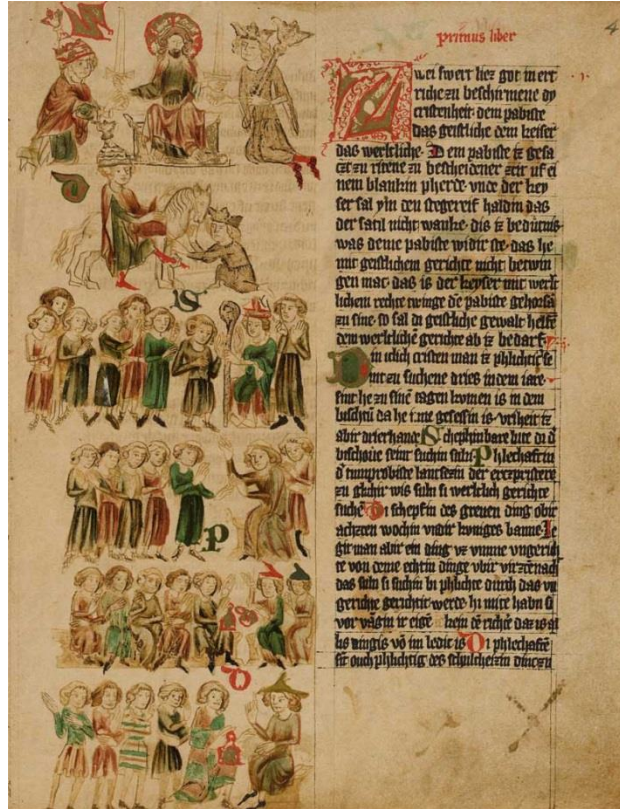 primus liber
4
Zwei swert liez got in ert
riche zu beschirmene dy
cristenheit· dem pabiste
das geistliche dem keiser
das werltliche· Dem pabiste iz gesa
czt zu ritene zu bescheidener zcit uf ei
nem blankin pherde· vnde der key
ser sal ym den stegereif haldin das
der satil nicht wanke· dis iz beduitnis
was deme pabiste widir ste· das he
mit geistlichem gerichte nicht betwin
gen mac· das is der keyser mit werlt
lichem rechte twinge dē pabiste gehorsā
zu sine· so sal di geistliche gewalt helfē
dem werltlichē gerichte ab iz bedarf·
in iclich cristen man iz phlichtic se
nnt zu suchene dries in dem iare·
sint he zu sinē tagen komen is in dem
bischtū da he inne gesessin is· vriheit iz
abir drierhande· Schephinbare lute di d̄
bischoue seint suchin suln· Phlechaftin
d̄ tumprobiste lantsezin der erczpristere
zu glichir wis suln si werltlich gerichte
suchē· Di schepfin des greuen ding obir
achzcen wochin vndir kuniges banne· Le
git man abir ein ding vz vmme vngerich
te von deme echtin dinge vbir virzcēnach
das suln si suchin bi phlichte durch das vn
gerichte gerichtit werde· hi mite habn si
vor vāgin ir eigē kein dē richtē daz is al
lis dingis vō im ledic is· Di phlechaftē
sīt ouch phlichtig des schulcheizin dinc zu
S
P
D